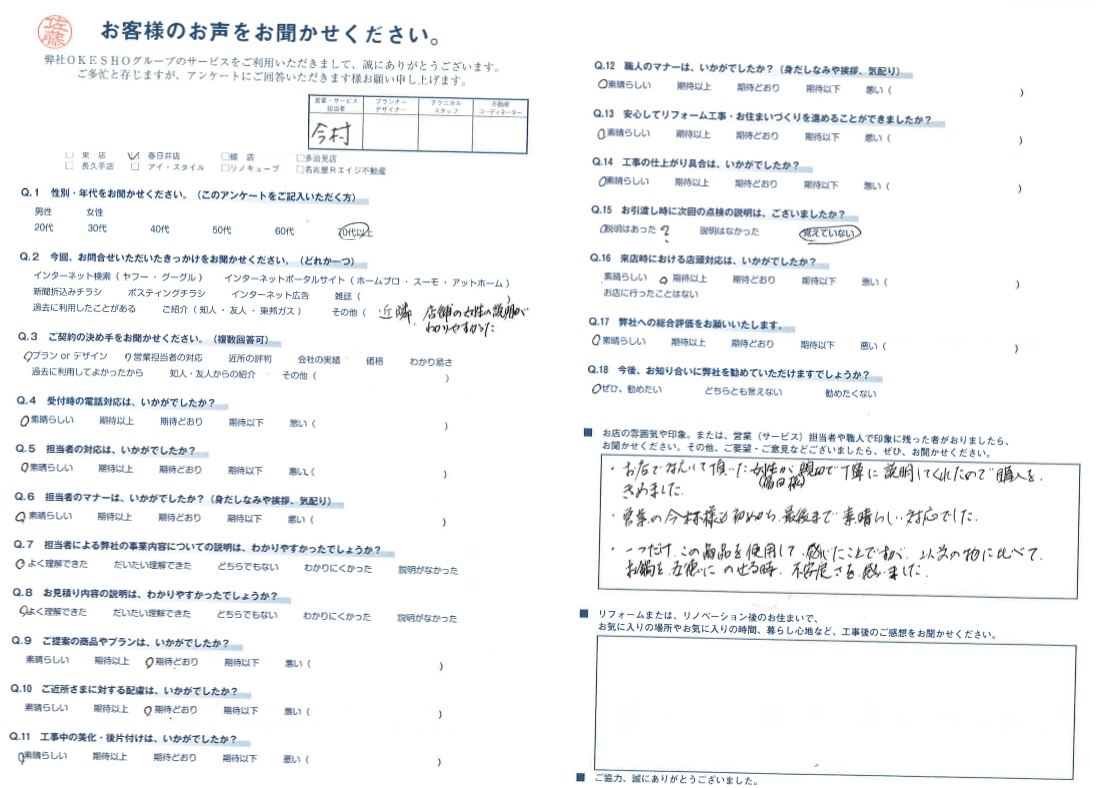 佐藤
お客様のお声をお聞かせください。
弊社OKESHOグループのサービスをご利用いただきまして、誠にありがとうございます。
ご多忙と存じますが、アンケートにご回答いただきます様お願い申し上げます。
営業・サービス担当者 プランナーデザイナー テクニカルスタッフ 不動産コーディネーター
今村
□ 本店 ☑ 春日井店 □緑店 □多治見店
□ 長久手店 □ アイ・スタイル □リノキューブ □名古屋Rエイジ不動産
Q.1 性別・年代をお聞かせください。（このアンケートをご記入いただく方）
男性 女性
20代 30代 40代 50代 60代 70代以上
Q.2 今回、お問合せいただいたきっかけをお聞かせください。（どれか一つ）
インターネット検索（ ヤフー ・ グーグル ） インターネットポータルサイト（ ホームプロ ・ スーモ ・ アットホーム ）
新聞折込みチラシ ポスティングチラシ インターネット広告 雑誌（ ）
過去に利用したことがある ご紹介（ 知人 ・ 友人 ・ 東邦ガス ） その他（ 近隣、店舗の女性の説明が
わかりやすかった
Q.3 ご契約の決め手をお聞かせください。（複数回答可）
プラン or デザイン 営業担当者の対応 近所の評判 会社の実績 価格 わかり易さ
過去に利用してよかったから 知人・友人からの紹介 その他（ ）
Q.4 受付時の電話対応は、いかがでしたか？
素晴らしい 期待以上 期待どおり 期待以下 悪い（ ）
Q.5 担当者の対応は、いかがでしたか？
素晴らしい 期待以上 期待どおり 期待以下 悪い（ ）
Q.6 担当者のマナーは、いかがでしたか？（身だしなみや挨拶、気配り）
素晴らしい 期待以上 期待どおり 期待以下 悪い（ ）
Q.7 担当者による弊社の事業内容についての説明は、わかりやすかったでしょうか？
よく理解できた だいたい理解できた どちらでもない わかりにくかった 説明がなかった
Q.8 お見積り内容の説明は、わかりやすかったでしょうか？
よく理解できた だいたい理解できた どちらでもない わかりにくかった 説明がなかった
Q.9 ご提案の商品やプランは、いかがでしたか？
素晴らしい 期待以上 期待どおり 期待以下 悪い（ ）
Q.10 ご近所さまに対する配慮は、いかがでしたか？
素晴らしい 期待以上 期待どおり 期待以下 悪い（ ）
Q.11 工事中の美化・後片付けは、いかがでしたか？
素晴らしい 期待以上 期待どおり 期待以下 悪い（ ）
Q.12 職人のマナーは、いかがでしたか？（身だしなみや挨拶、気配り）
素晴らしい 期待以上 期待どおり 期待以下 悪い（ ）
Q.13 安心してリフォーム工事・お住まいづくりを進めることができましたか？
素晴らしい 期待以上 期待どおり 期待以下 悪い（ ）
Q.14 工事の仕上がり具合は、いかがでしたか？
素晴らしい 期待以上 期待どおり 期待以下 悪い（ ）
Q.15 お引渡し時に次回の点検の説明は、ございましたか？
説明はあった ? 説明はなかった 覚えていない
Q.16 来店時における店頭対応は、いかがでしたか？
素晴らしい 期待以上 期待どおり 期待以下 悪い（ ）
お店に行ったことはない
Q.17 弊社への総合評価をお願いいたします。
素晴らしい 期待以上 期待どおり 期待以下 悪い（ ）
Q.18 今後、お知り合いに弊社を勧めていただけますでしょうか？
ぜひ、勧めたい どちらとも言えない 勧めたくない
■ お店の雰囲気や印象。または、営業（サービス）担当者や職人で印象に残った者がおりましたら、
お聞かせください。その他、ご要望・ご意見などございましたら、ぜひ、お聞かせください。
・お店で対応して頂いた女性が、親切で丁寧に説明してくれたので購入を、
きめました。
・営業の今村様も初めから、最後まで素晴らしい対応でした。
・一つだけ、この商品を使用して、感じたことですが、以前の物に比べて、
お鍋を五徳にのせる時、不安定さを感じました。
■ リフォームまたは、リノベーション後のお住まいで、
お気に入りの場所やお気に入りの時間、暮らし心地など、工事後のご感想をお聞かせください。
■ ご協力、誠にありがとうございました。